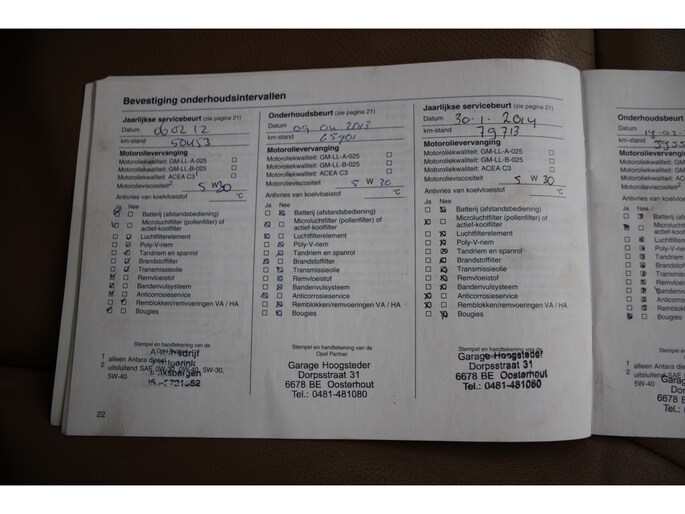 Bevestiging onderhoudsintervallen
Jaarlijkse servicebeurt (zie pagina 21)
Datum 06 02 12
km-stand 50453
Motorolievervanging
Motoroliekwaliteit: GM-LL-A-025
Motoroliekwaliteit: GM-LL-B-025
Motoroliekwaliteit: ACEA C3 1
Motorolieviscositeit 2: 5 W 30
Antivries van koelvloeistof °C
Ja Nee
Batterij (afstandsbediening)
Microluchtfilter (pollenfilter) of
actief-koolfilter
Luchtfilterelement
Poly-V-riem
Tandriem en spanrol
Brandstoffilter
Transmissieolie
Remvloeistof
Bandenvulsysteem
Anticorrosieservice
Remblokken/remvoeringen VA / HA
Bougies
Stempel en handtekening van de
1 alleen Antara diesel
2 uitsluitend SAE 0W-30, 0W-40, 5W-30,
5W-40
22
Onderhoudsbeurt (zie pagina 21)
Datum 09 04 2013
km-stand 65701
Motorolievervanging
Motoroliekwaliteit: GM-LL-A-025
Motoroliekwaliteit: GM-LL-B-025
Motoroliekwaliteit: ACEA C3
Motorolieviscositeit 5 W 30
Antivries van koelvloeistof °C
Ja Nee
Batterij (afstandsbediening)
Microluchtfilter (pollenfilter) of
actief-koolfilter
Luchtfilterelement
Poly-V-riem
Tandriem en spanrol
Brandstoffilter
Transmissieolie
Remvloeistof
Bandenvulsysteem
Anticorrosieservice
Remblokken/remvoeringen VA / HA
Bougies
Stempel en handtekening van de
Opel Partner
Garage Hoogsteder
Dorpsstraat 31
6678 BE Oosterhout
Tel.: 0481-481080
Jaarlijkse servicebeurt (zie pagina 21)
Datum 30-1-2014
km-stand 79713
Motorolievervanging
Motoroliekwaliteit: GM-LL-A-025
Motoroliekwaliteit: GM-LL-B-025
Motoroliekwaliteit: ACEA C3
Motorolieviscositeit 5 W 30
Antivries van koelvloeistof °C
Ja Nee
Batterij (afstandsbediening)
Microluchtfilter (pollenfilter) of
actief-koolfilter
Luchtfilterelement
Poly-V-riem
Tandriem en spanrol
Brandstoffilter
Transmissieolie
Remvloeistof
Bandenvulsysteem
Anticorrosieservice
Remblokken/remvoeringen VA / HA
Bougies
Stempel en handtekening van de
Garage Hoogsteder
Dorpsstraat 31
6678 BE Oosterhout
Tel.: 0481-481080
Onderhoudsbeurt
Datum
km-stand
Motorolievervanging
Motoroliekwaliteit
Motoroliekwaliteit
Motoroliekwaliteit
Motorolieviscositeit
Antivries van koelvloeistof
Ja Nee
Batterij (afsta
Microluchtfilter
actief-koolfilter
Luchtfilterelement
Poly-V-riem
Tandriem en
Brandstoffilter
Transmissieolie
Remvloeistof
Bandenvulsy
Anticorrosie
Remblokken
Bougies
Stempel
1 alleen Antara
2 uitsluitend S
5W-40
Garag
Dor
6678 BE
Tel.: 0